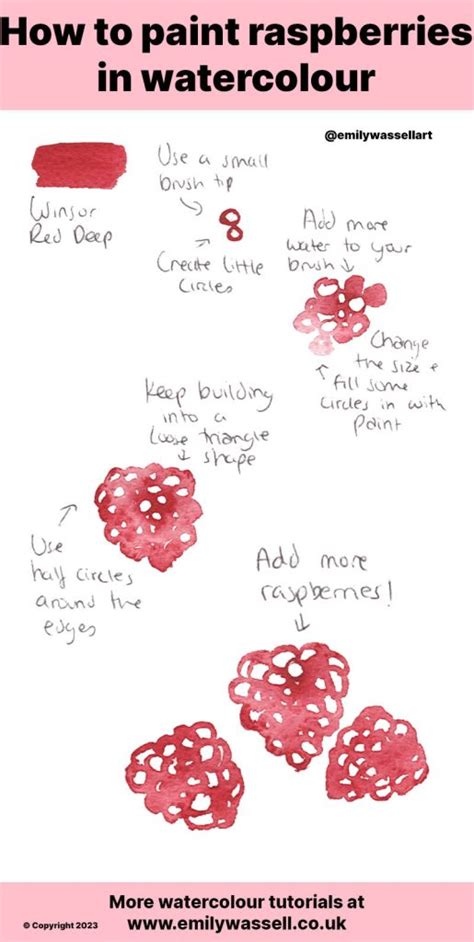 How to paint raspberries
in watercolour
@emilywassellart
Winsor
Red Deep
Use a small
brush tip
Create little
circles
Add more
water to your
brush
Change
the size +
fill some
circles in with
paint
Keep building
into a
loose triangle
shape
Use
half circles
around the
edges
Add more
raspberries!
More watercolour tutorials at
© Copyright 2023
www.emilywassell.co.uk